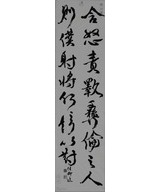 含怒責斁彝倫之人
則僕射將何以對